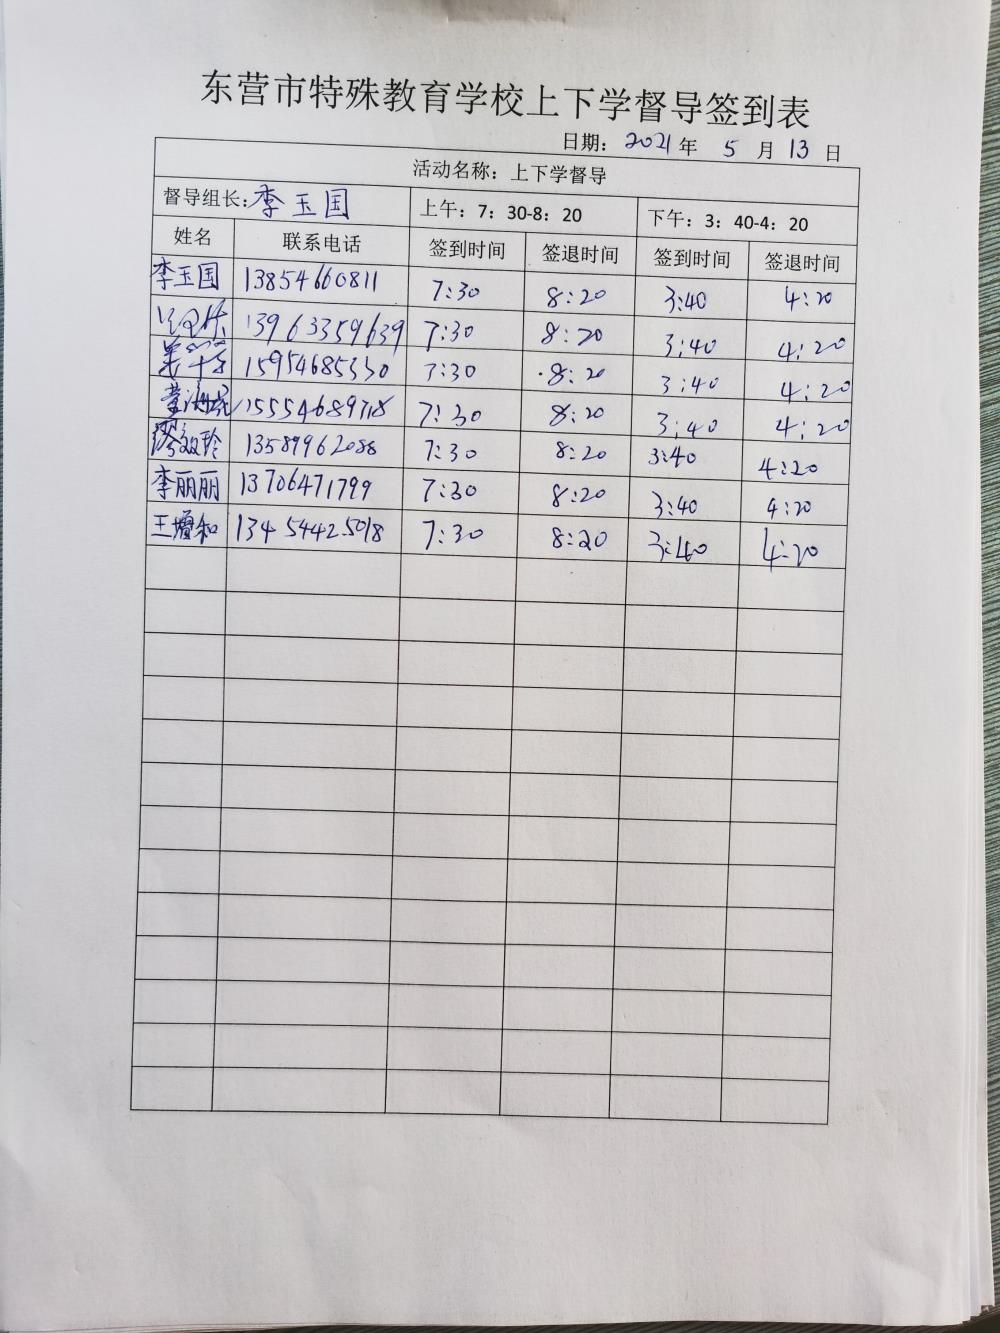 东营市特殊教育学校上下学督导签到表
日期: 2021 年 5 月 13 日
活动名称: 上下学督导
督导组长: 李玉国 上午: 7: 30-8: 20 下午: 3: 40-4: 20
姓名 联系电话 签到时间 签退时间 签到时间 签退时间
李玉国 13854660811 7:30 8:20 3:40 4:20
13963359639 7:30 8:20 3:40 4:20
15954685330 7:30 8:20 3:40 4:20
15554689718 7:30 8:20 3:40 4:20
13589962088 7:30 8:20 3:40 4:20
李丽丽 13706471799 7:30 8:20 3:40 4:20
王增和 13454425018 7:30 8:20 3:40 4:20